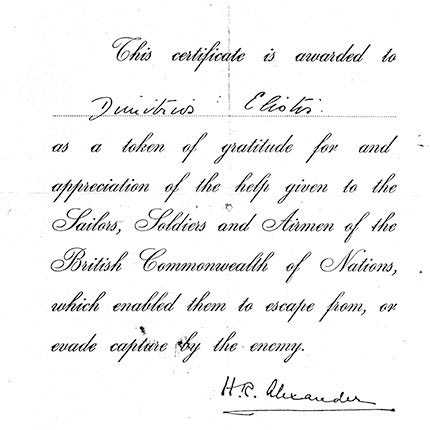 This certificate is awarded to
Dimitrios Eliotis.
as a token of gratitude for and
appreciation of the help given to the
Sailors, Soldiers and Airmen of the
British Commonwealth of Nations,
which enabled them to escape from, or
evade capture by the enemy.
H.R. Alexander